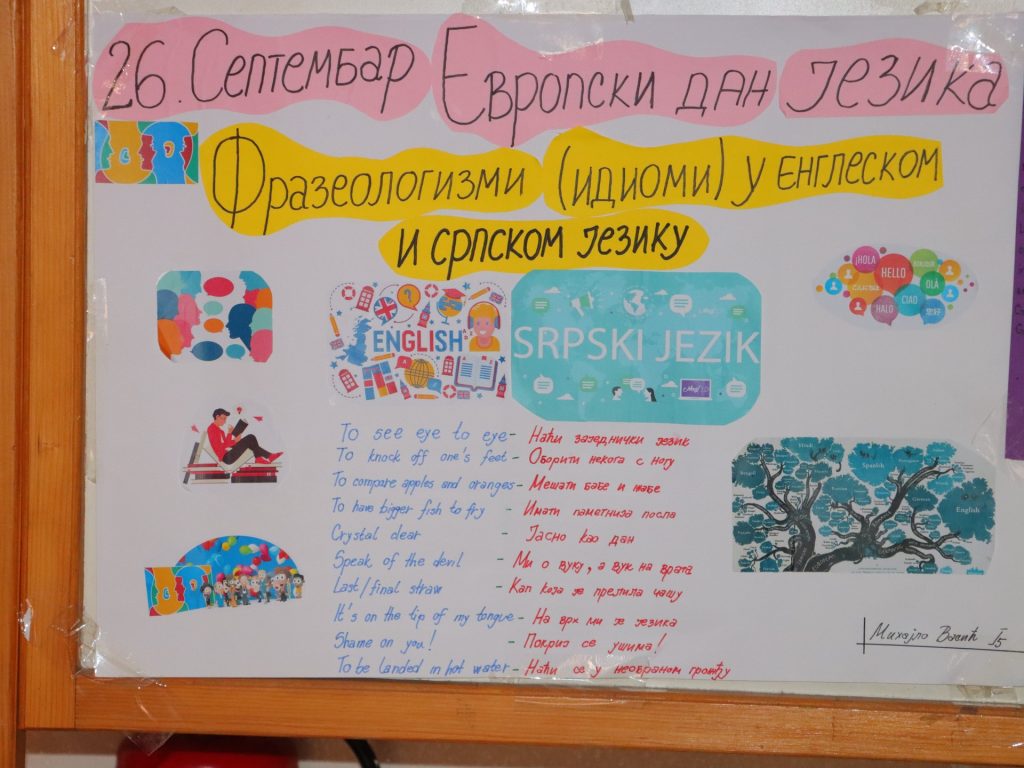 26. Септембар Европски дан језика
Фразеологизми (идиоми) у енглеском
и српском језику
¡HOLA
HELLO
BONJOUR
OLÁ
CIAO
HALLO
ENGLISH
SRPSKI JEZIK
To see eye to eye - Наћи заједнички језик
To knock off one's feet - Оборити некога с ногу
To compare apples and oranges - Мешати бабе и жабе
To have bigger fish to fry - Имати паметнија посла
Crystal clear - Јасно као дан
Speak of the devil - Ми о вуку, а вук на врата
Last/final straw - Кап која је прелила чашу
It's on the tip of my tongue - На врх ми је језика
Shame on you! - Покриј се ушима!
To be landed in hot water - Наћи се у необраном грожђу
Hindi
Spanish
English
Михајло I5